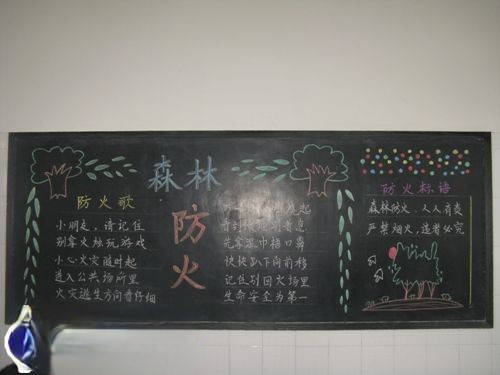 森林
防火
防火歌
小朋友，请记住
别拿火烛玩游戏
小心火灾随时起
进入公共场所里
火灾逃生方向看仔细
起
看到
先拿湿巾捂口鼻
快快趴下向前移
记住别回火场里
生命安全为第一
防火标语
森林防火，人人有责
严禁烟火，违者必究